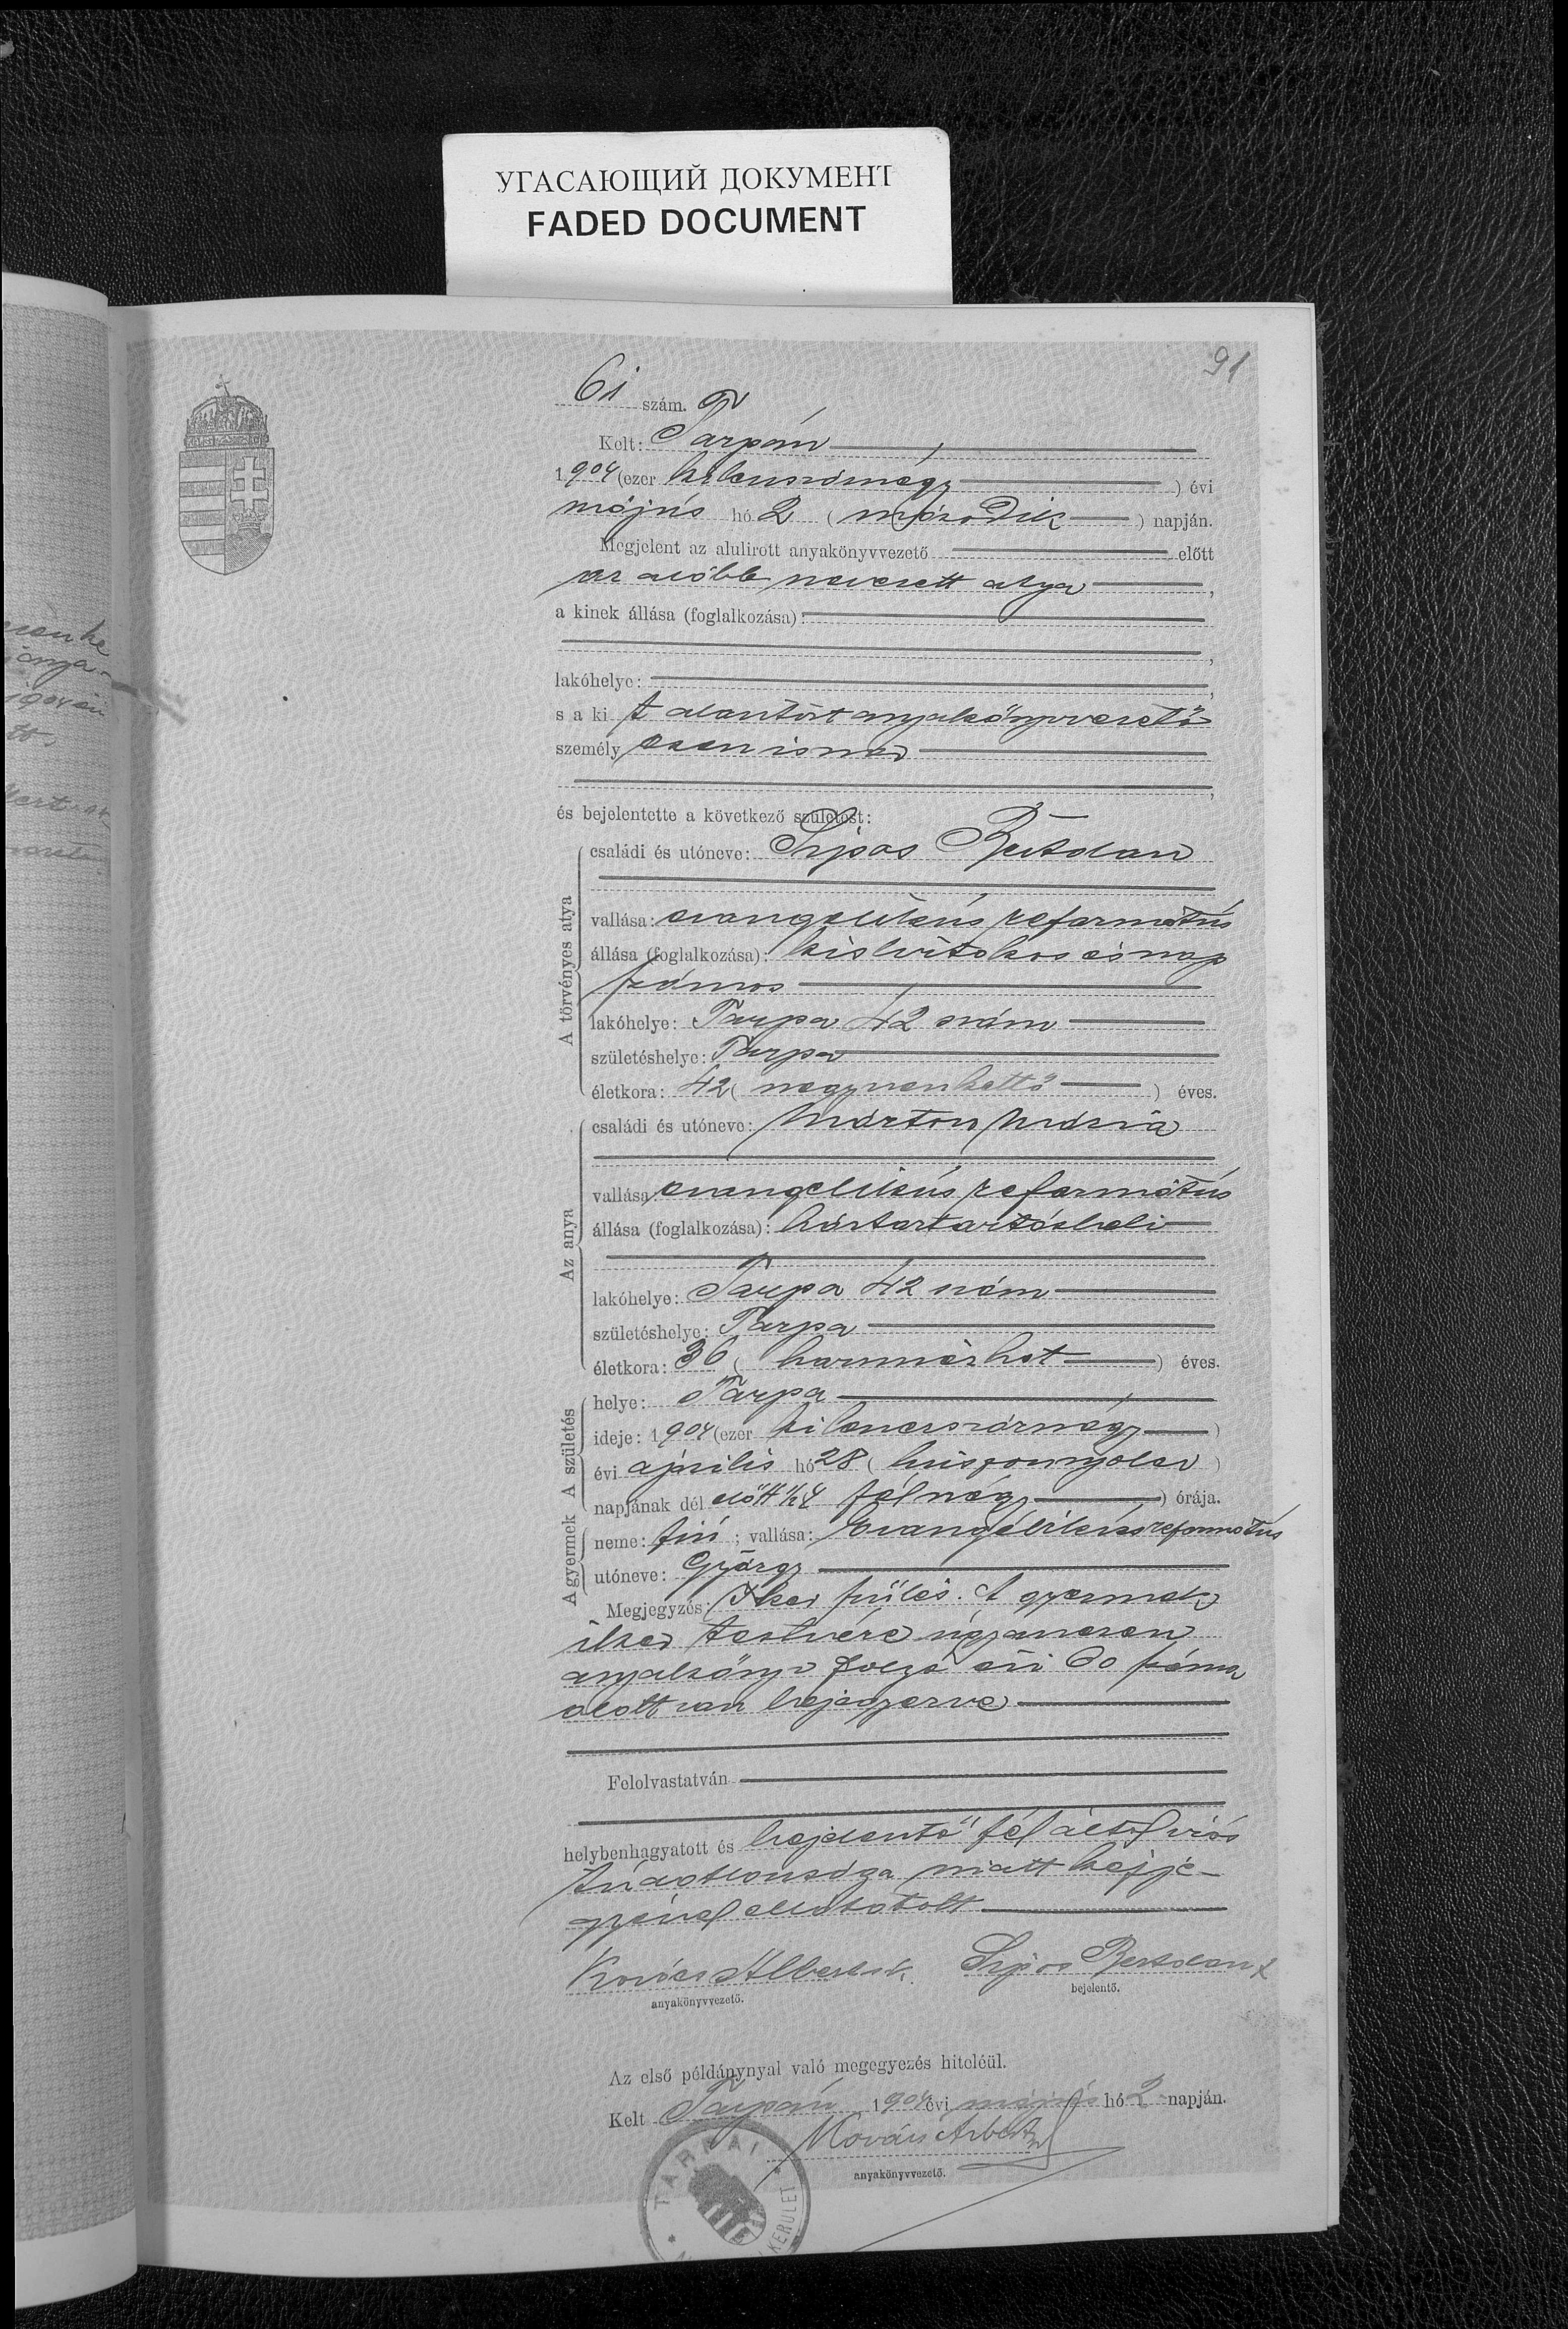 УГАСАЮЩИЙ ДОКУМЕНТ
FADED DOCUMENT
91
61 szám.
Kelt: Tarpán
1904 (ezer kilenszáznégy ) évi
május hó 2 ( második ) napján.
Megjelent az alulirott anyakönyvvezető előtt
az alább nevezett atya ,
a kinek állása (foglalkozása):
,
lakóhelye: ,
s a ki t alantirt anyakönyvvezető
személy esen ismer
,
és bejelentette a következő születést:
A törvényes atya
családi és utóneve: Sipos Bertalan
vallása: evangelikús református
állása (foglalkozása): kisbirtokos és nap
számos
lakóhelye: Tarpa 42 szám
születéshelye: Tarpa
életkora: 42 ( negyvenkettő ) éves.
Az anya
családi és utóneve: Márton Mária
vallása: evangelikús református
állása (foglalkozása): háztartásbeli
lakóhelye: Tarpa 42 szám
születéshelye: Tarpa
életkora: 36 ( harminczhat ) éves.
A születés
helye: Tarpa
ideje: 1904 (ezer kilenczszáznégy )
évi április hó 28 ( huszonnyolcz )
napjának dél előtt 1/2 4 fél négy ) órája.
A gyermek
neme: fiú ; vallása: Evangélikús református
utóneve: György
Megjegyzés: Iker szülés. A gyermek
iker testvére úgyanezen
anyakönyv folyó évi 60 száma
alatt van bejegyezve
Felolvastatván
helybenhagyatott és bejelentő fél által irás
tudatlansága miatt kézje-
gyével elláttatott
Kovács Albert sk. Sipos Bertalan x
anyakönyvvezető. bejelentő.
Az első példánynyal való megegyezés hiteléül.
Kelt Tarpán 1904 évi május hó 2 napján.
Kovács Albert
anyakönyvvezető.
TARPAI
KERÜLET